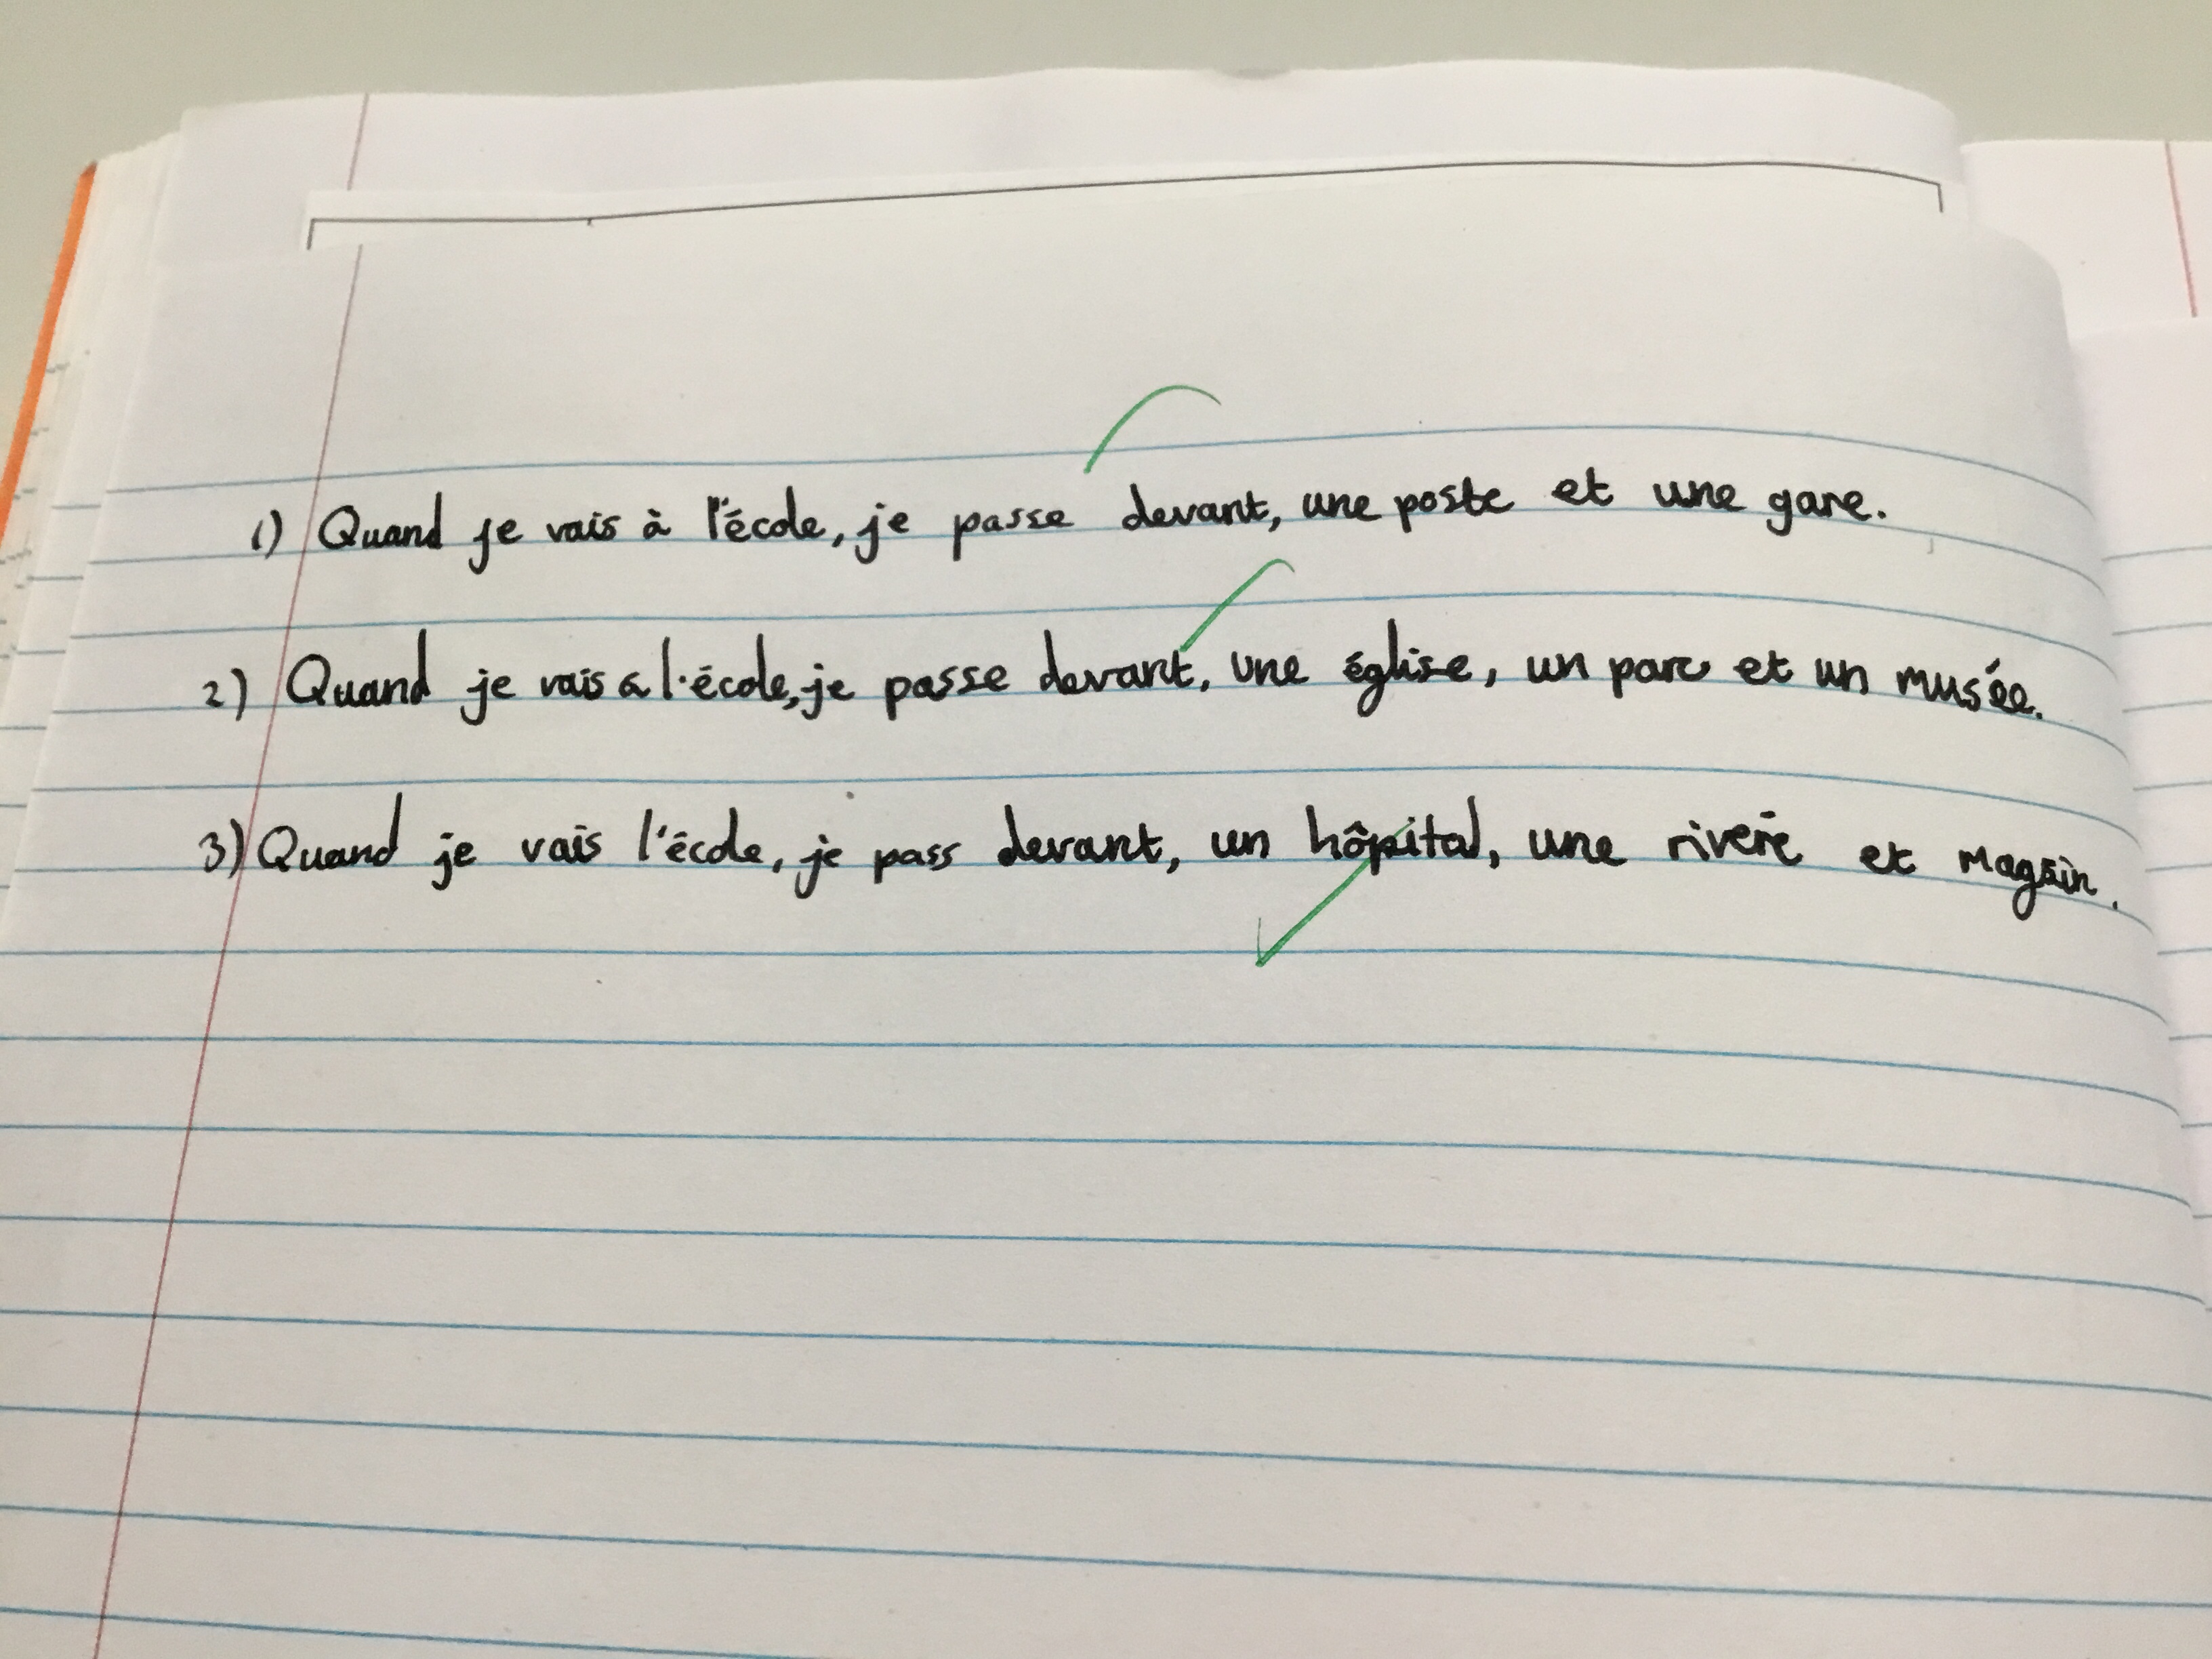 1) Quand je vais à l'école, je passe devant, une poste et une gare.
2) Quand je vais a l'école, je passe devant, une église, un parc et un musée.
3) Quand je vais l'école, je pass devant, un hôpital, une rivere et magsin.